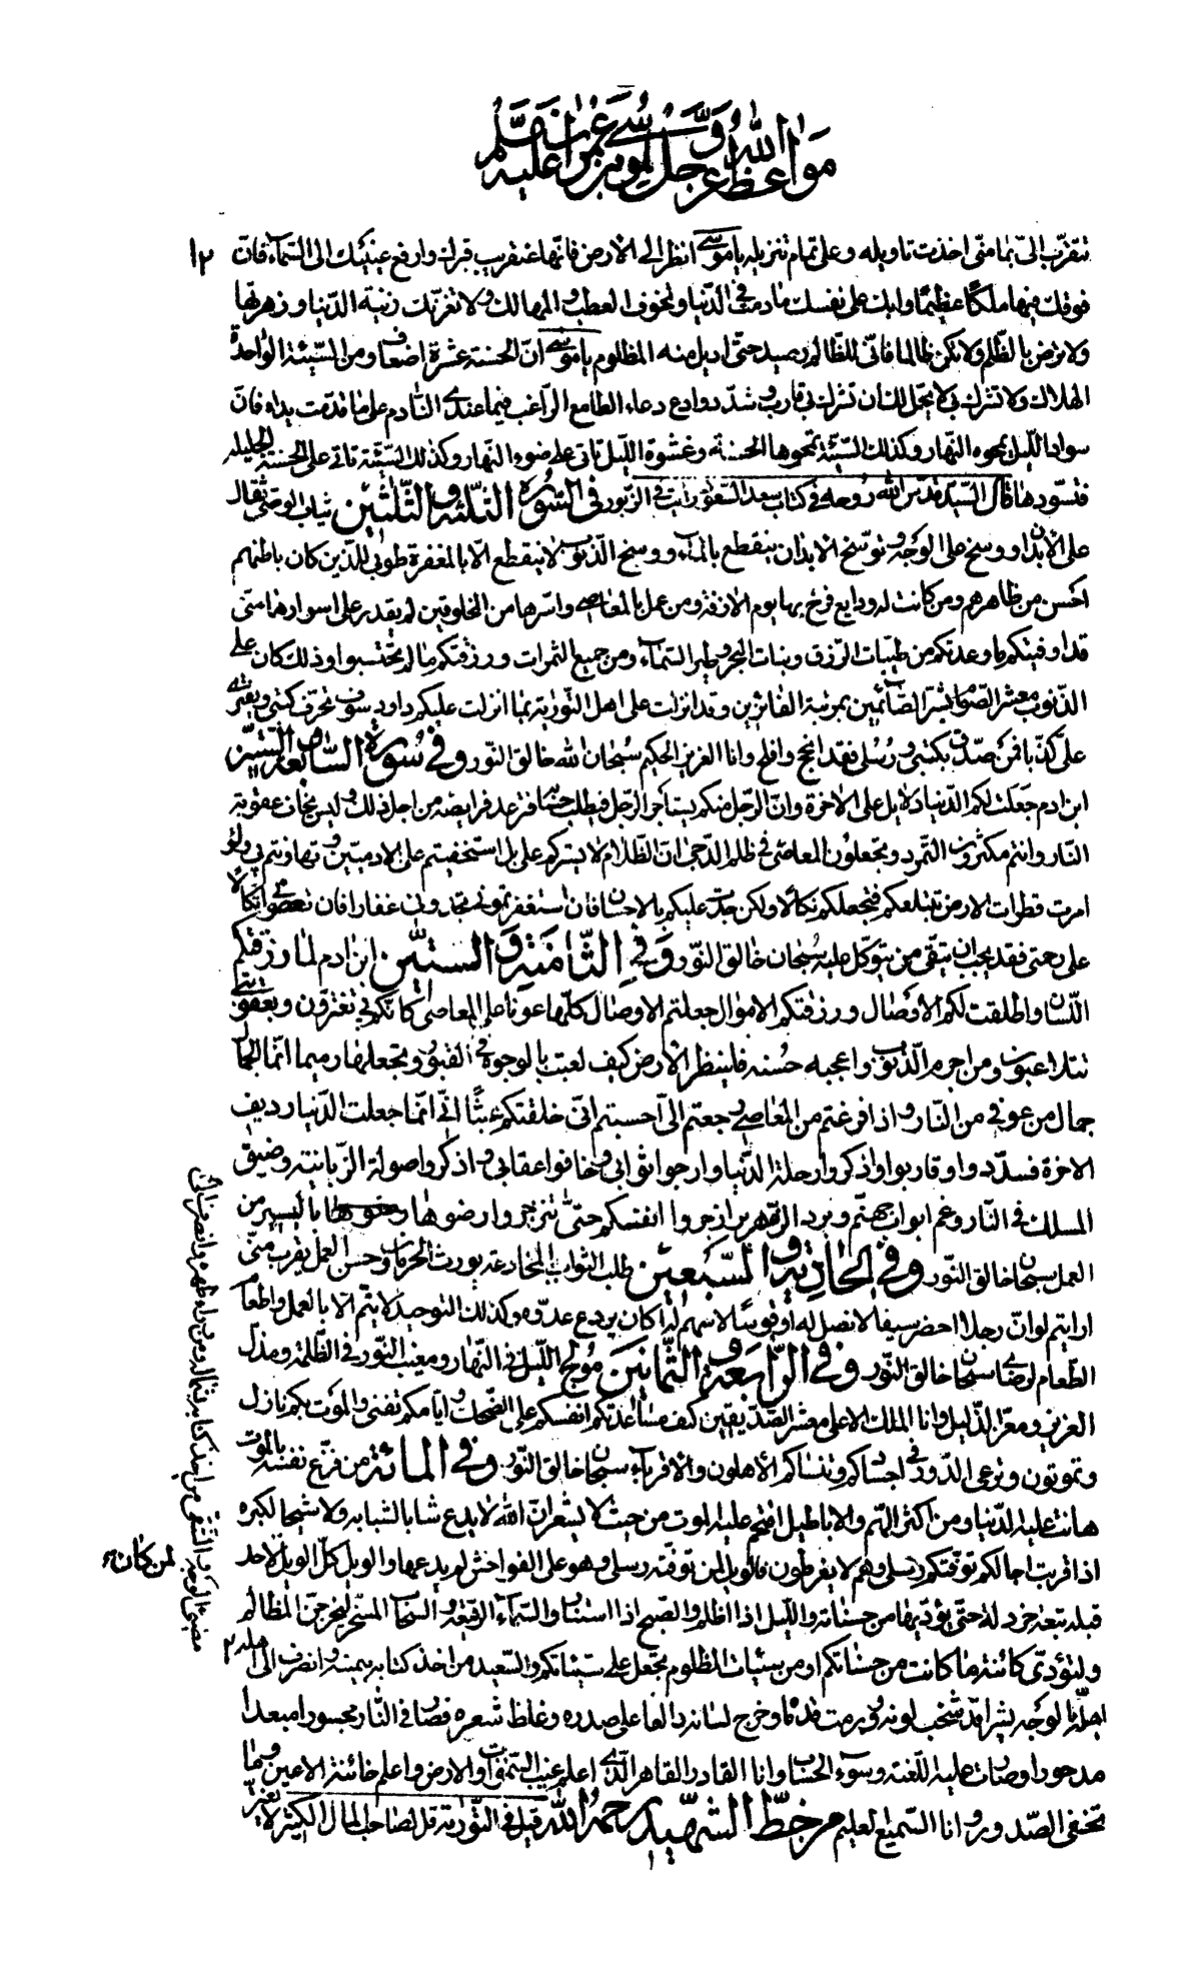 مواعظ الله عز وجل لموسى بن عمران عليه السلم
١٢
تتقرّب الىّ بما منّى اخذت تاويله وعلىّ تمام تنزيله يا موسى انظر الى الارض فانّها عن قريب قبرك وارفع عينيك الى السّماء فانّ
فوقك فيها ملكا عظيما وابك على نفسك ما دمت فى الدّنيا وتخوف العطب والمهالك ولا تغرّنّك زينة الدّنيا وزهرتها
ولا ترض بالظّلم ولا تكن ظالما فانّى للظّالم رصيد حتّى اديل منه المظلوم يا موسى انّ الحسنة عشرة اضعاف ومن السّيئة الواحدة
الهلاك ولا تشرك بى لا يحلّ لك ان تشرك بى قارب وسدّد وادع دعاء الطامع الرّاغب فيما عندى النّادم على ما قدّمت يداه فانّ
سواد اللّيل يمحوه النّهار وكذلك السّيئة تمحوها الحسنة وغشوة اللّيل تاتى على ضوء النّهار وكذلك السّيّئة تاتى على الحسنة الجليلة
فتسوّدها قال السّيّد قدّس الله روحه فى كتاب سعد السّعود رايت فى الزّبور فى السّورة الثّلثة والثّلثين ثياب الوصى ثقال
على الابدان ووسخ على الوجه و وسخ الابدان ينقطع بالماء ووسخ الذّنوب لا ينقطع الّا بالمغفرة طوبى للّذين كان باطنهم
احسن من ظاهرهم ومن كانت له ودايع فرح بها يوم الازفة ومن عمل بالمعاصى واسرّها من المخلوقين لم يقدر على اسرارها منّى
قد اوفيتكم ما وعدتكم من طيّبات الرّزق ونبات البحر وطير السّماء ومن جميع الثمرات ورزقتكم ما لم تحتسبوا وذلك كان على
الذّنوب معشر الصّوّام بشّر الصّائمين بمرتبة الفائزين وقد انزلت على اهل التّورية بما انزلت عليكم داود سوف تحرّف كتبى ويفترى
علىّ كذبا فمن صدّق بكتبى ورسلى فقد انجح وافلح وانا العزيز الحكيم سبحان الله خالق النّور وفى سورة السّابعة والستّين
ابن ادم جعلت لكم الدّنيا دلايل على الاخرة وانّ الرّجل منكم يستاجر الرّجل فيطلب حسابه فترعد فرايصه من اجل ذلك وليس يخاف عقوبة
النّار وانتم مكثرون التّمرّد وتجعلون المعاصى فى ظلم الدّجى انّ الظّلام لا يستركم علىّ بل استخفيتم على الادميّين وتهاونتم بى ولو
امرت فطرات الارض تبتلعكم فتجعلكم نكالا ولكن جدت عليكم بالاحسان فان استغفرتمونى تجدونى غفارا فان تعصونى اتّكالا
على رحمتى فقد يجب ان يتّقى من يتوكّل عليه سبحان خالق النّور وفى الثّامنة والستّين ابن ادم لمّا رزقتكم
اللّسان واطلقت لكم الاوصال ورزقتكم الاموال جعلتم الاوصال كلّها عونا على المعاصى كانّكم بى تغترّون وبعقوبتى
تتلاعبون ومن اجرم الذّنوب واعجبه حسنه فلينظر الارض كيف لعبت بالوجوه فى القبور وتجعلها رميما انّما الجمال
جمال من عوفى من النّار واذا فرغتم من المعاصى رجعتم الىّ احسبتم انّى خلقتكم عبثا انّى انّما جعلت الدّنيا رديف
الاخرة فسدّدوا وقاربوا واذكروا رحلة الدّنيا وارجوا ثوابى وخافوا عقابى واذكروا صولة الزّبانية وضيق
المسلك فى النّار وغمّ ابواب جهنّم وبرد الزّمهرير ازجروا انفسكم حتّى تنزجر وارضوها باليسير من
العمل سبحان خالق النّور وفى الحادية والسّبعين طلب الثواب بالمخادعة يورث الحرمان وحسن العمل يقرب منّى
ارايتم لو انّ رجلا احضر سيفا لا نصل له او قوسا لا سهم له اكان يردع عدوّه وكذلك التوحيد لا يتمّ الّا بالعمل واطعام
الطّعام لرضاى سبحان خالق النّور وفى الرّابعة و الثّمانين مولج اللّيل فى النّهار ومغيب النّور فى الظّلمة ومذلّ
العزيز ومعزّ الذّليل وانا الملك الاعلى معشر الصّدّيقين كيف مساعدتكم انفسكم على الضّحك وايّامكم تفنى والموت بكم نازل
وتموتون وترعى الدّود فى اجسادكم وتنساكم الاهلون والاقرباء سبحان خالق النّور وفى المائة من فزّع نفسه بالموت
هانت عليه الدّنيا ومن اكثر الهمّ والاباطيل اقتحم عليه الموت من حيث لا يشعر انّ الله لا يدع شابا لشبابه ولا شيخا لكبره
اذا قربت اجالكم توفّتكم رسلى وهم لا يفرطون فالويل لمن توفّته رسلى وهو على الفواحش لم يدعها والويل كلّ الويل لاحد
لمن كان
قبله تبعة خردلة حتّى يؤدّيها من حسناته واللّيل اذا اظلم والصّبح اذا استنار والسّماء الرّفيعة والسّحاب المسخّر ليخرجنّ المظالم
ولتؤدّى كائنة ما كانت من حسناتكم او من سيئات المظلوم تجعل على سيّئاتكم والسّعيد من اخذ كتابه بيمينه وانصرف الى
اهله مضىء الوجه والشّقى من اخذ كتابه بشماله ومن وراء ظهره وانصرف الى اهله
اهله باسر الوجه بسرا قد شحب لونه وورمت قدماه وخرج لسانه دالعا على صدره وغلظ شعره فصار فى النّار محسورا مبعدا
مدحورا وصارت عليه اللّعنة وسوء الحساب وانا القادر القاهر الّذى اعلم غيب السّموات والارض واعلم خائنة الاعين وما
تخفى الصّدور وانا السّميع العليم من خطّ الشهيد رحمه الله قيل فى التّورية قل لصاحب المال الكثير لا يغترّ